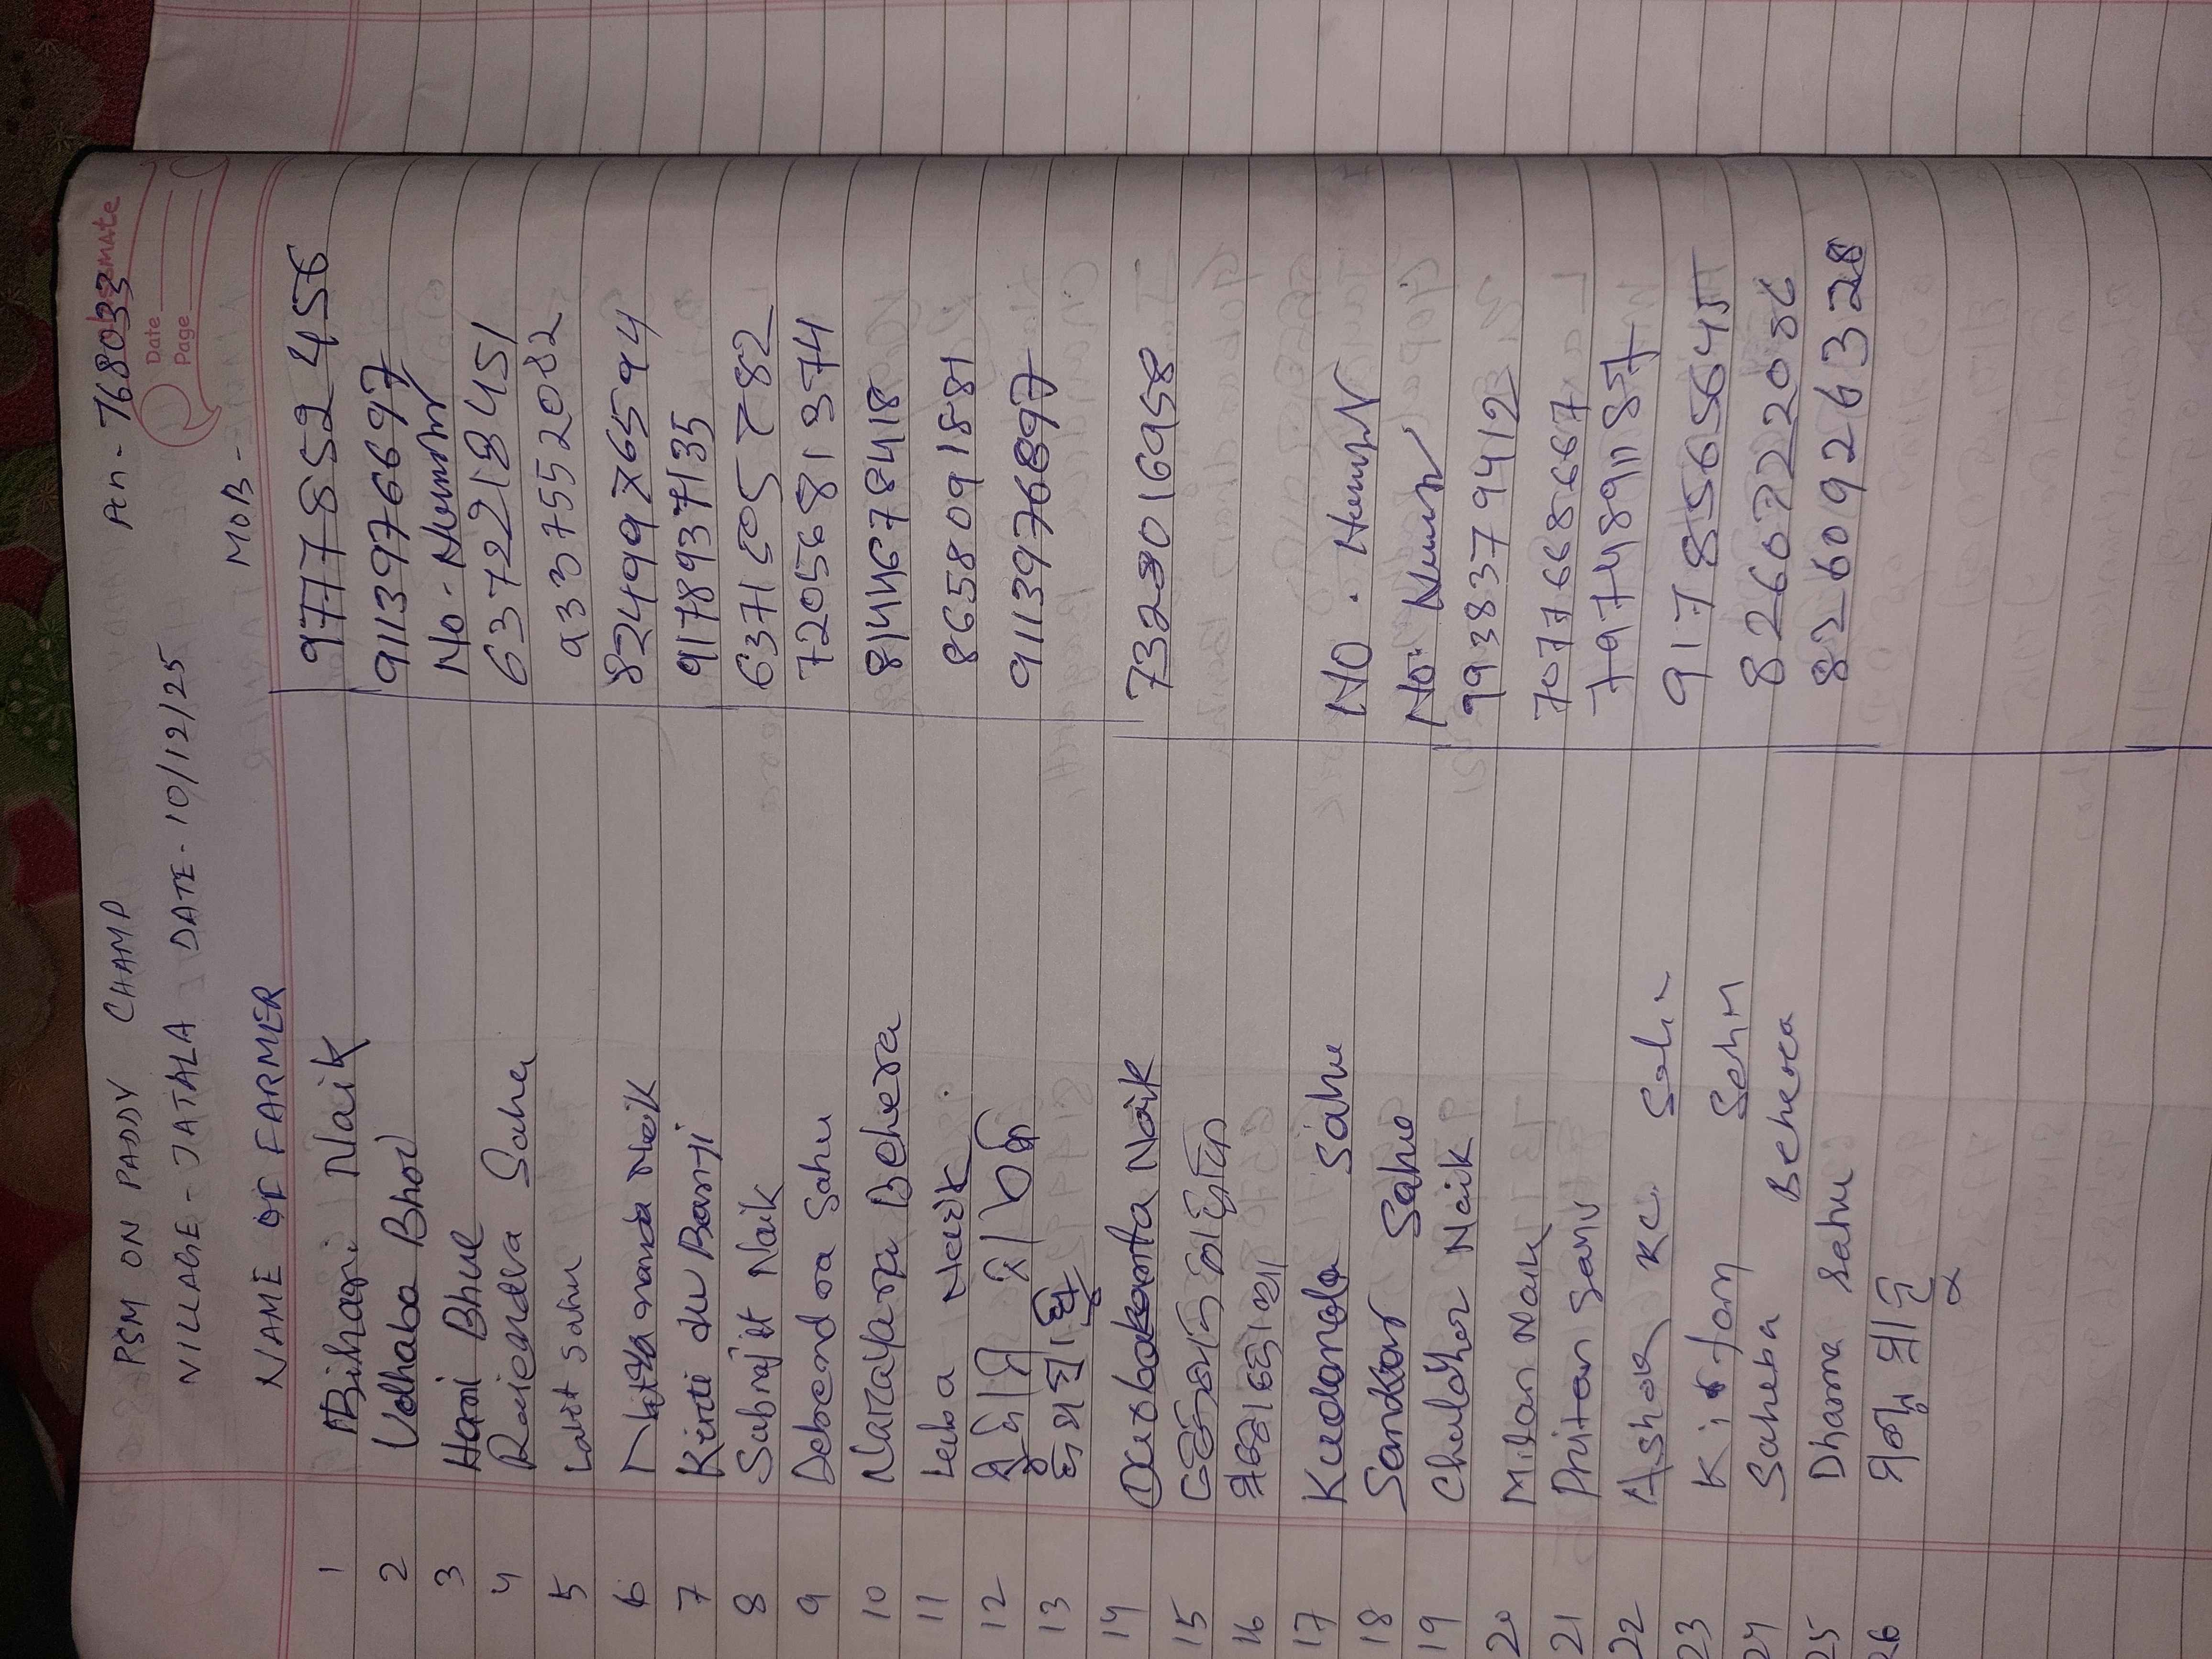 Pin - 768033
classmate
Date
Page
PSM ON PADDY CHAMP
VILLAGE - JATALA DATE - 10/12/25
NAME OF FARMER MOB -
1 Bihari Naik 9777852456
2 Udhaba Bhoi 9113976697
3 Hari Bhue No - Number
4 Rajendra Sahu 6372218451
5 Lalit Sahu 9337552082
6 Nityananda Naik 8249976594
7 Kirti du Barji 9178937135
8 Sabrajit Naik 6371505782
9 Debendra Sahu 7205681374
10 Narayana Behera 8144678418
11 Leba Naik 8658091881
12 9113976897
13
14 Durbakanta Naik 7323016958
15
16
17 Kudanda Sahu NO. Number
18 Sankar Sahu No. Number
19 Chuldher Naik 9938379412
20 Milan Naik 7077668667
21 Pritan Sahu 7974891187
22 Ashok Kc. Sahu 9178565645
23 Sahu 8260722086
24 Saheba Behera 8260926328
25 Dharma Sahu
26